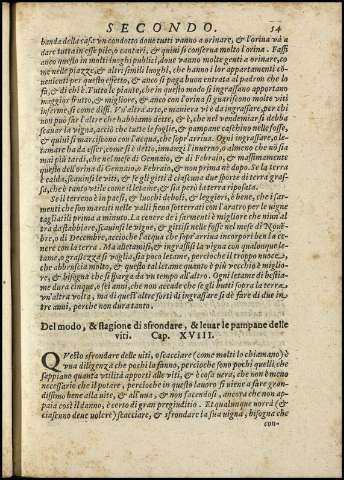 SECONDO. 34
banda della casa un condotto doue tutti vanno a orinare, & l'orina và a
dare tutta in esse pile, o cantari, & quiui si conserua molto l'orina. Fassi
anco questo in molti luoghi publici, doue vanno molte genti a orinare, co
me nelle piazze, & altri simili luoghi, che hanno i lor appartamenti có-
uenienti per questo effetto, & anco si paga buon entrata al padron che lo
fa, & di chi è. Tutte le piante, che in questo modo si ingrassano apportano
maggior frutto, & migliore, & anco con l'orina si guariscono molte viti
inferme, si come dissi. V'altra arte, e maniera vi è da ingrassare, per chi
non può far l'altre che habbiamo dette, & è, che nel vendemiar si debba
scauar la vigna, acciò che tutte le foglie, & pampane caschino nelle fosse,
& quiui si marciscono con l'acqua, che sopr'arriua. Ogni ingrassare, o le-
tamare ha da esser, come si è detto, innanzi l'inuerno, o almeno che nõ sia
mai più tardi, che nel mese di Gennaio, & di Febraio, & massimamente
quello dell'orina di Gennaio a Febraio, & non prima nè dopo. Se la terra
è calda, scauinsi le viti, & se gli gitti a ciascuna due sporte di terra gras-
sa, che è tanto vtile come il letame, & sia però la terra riposata.
Se il terreno è in paesi, & luochi deboli, & leggieri, è bene, che i sar-
menti che son mariti nelle valli sieno sotterrati con l'aratro per le vigne
tagliati prima a minuto. La cenere de i sermenti è migliore che niun'al
tra da stabbiare, scauinsi le vigne, & gittisi nelle fosse nel mese di Nouẽ-
bre, o di Decembre, acciochè l'acqua che sopr'arriua incorpori ben la ce-
nere con la terra. Ma altramẽti, & ingrassisi la vigna con qualonque leta-
me, o grassezza si voglia, sia poco letame, percioche il troppo nuoce,
che abbruscia molto, & questo tal letame quanto è più vecchio è miglio-
re, & bisogna che si sparga da vn tempo all'altro. Ogni letame di bestia-
me dura cinque, o sei anni, che non accade che se gli butti sopra la terra
vn'altra volta, ma di quest'altre sorti di ingrassare si dè fare di due in
tre anni, perche non dura tanto.
Del modo, & stagione di sfrondare, & leuar le pampane delle
viti. Cap. XVIII.
QVesto sfrondare delle uiti, o scacciare (come molti lo chiamano) è
vna diligenza che pochi la fanno, percioche sono pochi quelli, che
sappiano quanta vtilità apporti alle viti, & è cosa uera, che non è meno
necessario che il potare, percioche in questo lauoro si uiene a fare gran-
dissimo bene alla uite, & all'uua, & non facendosi, ancora che non ap-
paia così il danno, è certo di gran pregiuditio. Et qualunque vorrà (&
ciascuno deue uolere) scacciare, & sfrondare la sua vigna, bisogna che
con-